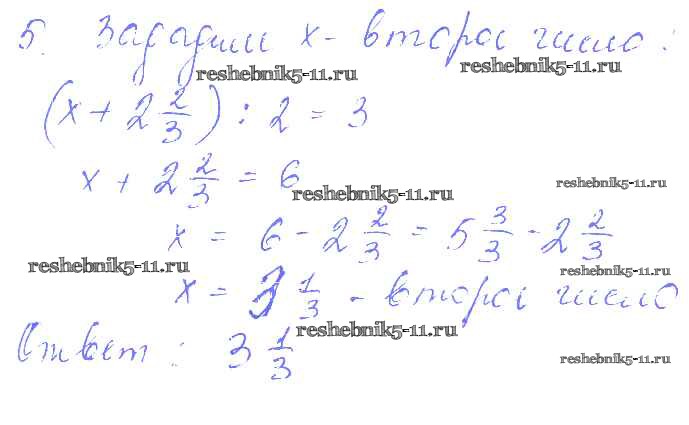 5. Зададим x - второе число:
reshebnik5-11.ru reshebnik5-11.ru
(x + 2 2/3) : 2 = 3
x + 2 2/3 = 6
reshebnik5-11.ru reshebnik5-11.ru
x = 6 - 2 2/3 = 5 3/3 - 2 2/3
reshebnik5-11.ru reshebnik5-11.ru
x = 3 1/3 - второе число
reshebnik5-11.ru
Ответ: 3 1/3
reshebnik5-11.ru